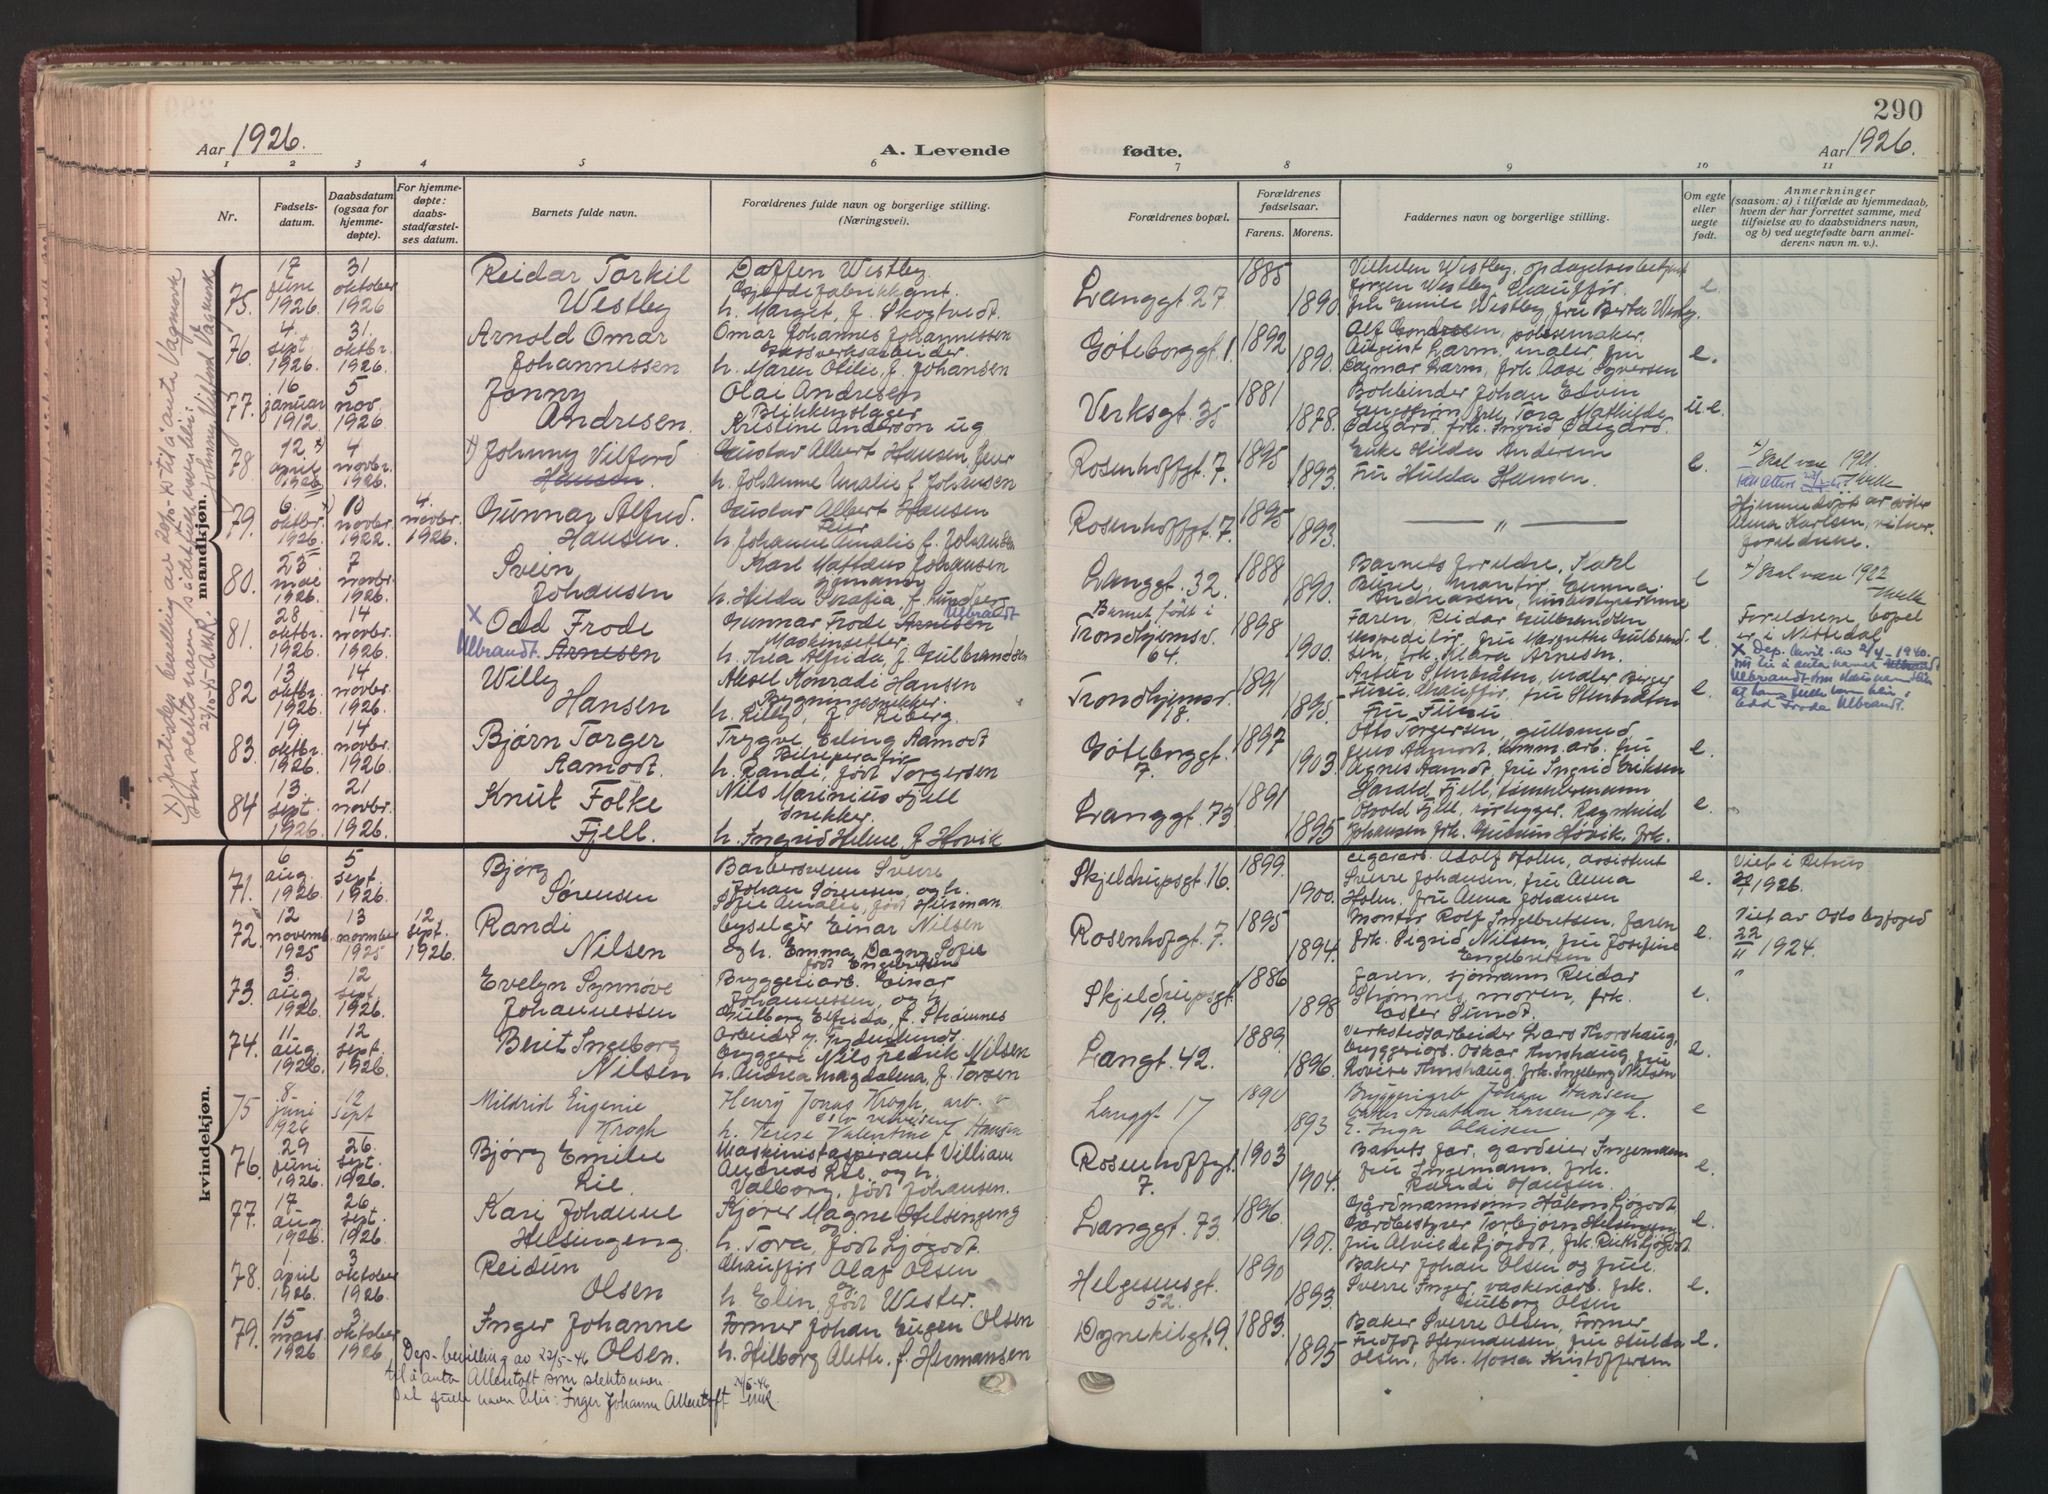 290
Aar 1926.
A. Levende
fødte.
Aar 1926.
1 2 3 4 5 6 7 8 9 10 11
Nr.
Fødsels-
datum.
Daabsdatum
(ogsaa for
hjemme-
døpte).
For hjemme-
døpte:
daabs-
stadfæstel-
ses datum.
Barnets fulde navn.
Forældrenes fulde navn og borgerlige stilling.
(Næringsvei).
Forældrenes bopæl.
Forældrenes
fødselsaar.
Farens. Morens.
Faddernes navn og borgerlige stilling.
Om egte
eller
uegte
født.
Anmerkninger
(saasom: a) i tilfælde av hjemmedaab,
hvem der har forrettet samme, med
tilføielse av to daabsvidners navn,
og b) ved uegtefødte barn anmel-
derens navn m. v.).
mandkjøn.
75. 17 juni 1926 31 oktober 1926 Reidar Torkil Westby
Daffen Westby
h. Marget, f. Skogtvedt
Langgt. 27 1885 1890
Vilhelm Westby,
Jørgen Westby, Chauffør.
fru Emilie Westby, fru Berta Westby. e
76. 4. sept 1926. 31. oktbr. 1926. Arnold Omar Johannessen
Omar Johannes Johannessen
Gassverksarbeider.
h. Maren Otilie, f. Johansen
Gøteborggt. 1. 1892 1890.
pølsemaker.
August Larm, maler, fru
Dagmar Larm, frk Aase Syversen e.
77. 16 januar 1912 5 nov. 1926 Jonny Andresen.
Olai Andresen
Blikkenslager
Kristine Anderson ug
Verksgt. 35 1881 1878.
Bokbinder Johan Edvin
frk. Tora Mathilde
Ødegård, frk. Ingrid Ødegård. u e.
78. 12. april 1926 4 novbr. 1926. Johnny Vilford Hansen.
Gustav Albert Hansen, feier
h. Johanne Amalie f. Johansen
Rosenhoffgt. 7. 1895 1893.
Enke Hilda Andersen
Fru Hulda Hansen. e.
Skal være 1921.
79. 6 oktbr. 1926. 10 novbr. 1922 4. novbr. 1926. Gunnar Alfred Hansen.
Gustav Albert Hansen
Feier
h. Johanne Amalie f. Johansen
Rosenhoffgt. 7. 1895 1893.
— " —
Hjemmedøpt av søster
Anna Karlsen, vitner
foreldrene.
80. 23 mai 1926. 7 novbr. 1926. Svein Johansen
Karl Mattæus Johansen
h. Hilda Serafia f. Lundberg
Langgt. 32. 1888 1890.
Barnets foreldre, Karl
Andreassen, e
Skal være 1922
81. 28 oktbr. 1926 14 novbr. 1926. X Odd Frode Ulbrandt. Arnesen
Gunnar Frode Arnesen Ulbrandt
Maskinsetter
h. Thea Alfrida, f. Gulbrandsen
Barnet født i
Trondhjemsv. 64. 1898 1900.
Faren, Reidar Gulbrandsen
fru Margrethe Gulbrand-
sen, frk. Klara Arnesen. e
Foreldrene bopel
er i Nittedal
X Dep. bevil. av 2/4-1940.
til å anta navnet
Ulbrandt
at hans fulle navn blir:
Odd Frode Ulbrandt.
82 13 oktbr. 1926. 14 novbr. 1926. Willy Hansen
Aksel Konradi Hansen
Bygningssnekker.
h. Lilly, f. Riberg.
Trondhjemsv. 18. 1891 1895.
maler Birger
Chauffør, fru Stenbråten
Fru e.
83. 19 oktbr. 1926 14 novbr. 1926. Bjørn Torger Aamodt.
Trygve Erling Aamodt
Bilreparatør
h. Randi, født Torgersen
Gøteborggt. 7. 1897 1903.
Otto Torgersen, gullsmed,
Jens Aamodt, komm. arb. fru
Agnes Aamodt fru Ingrid Eriksen e.
84 13. sept. 1926. 21 novbr. 1926. Knut Folke Fjell.
Nils Marinius Fjell
snekker.
h. Ingrid Helene, f. Hovik
Langgt. 73 1891 1895
Harald Fjell, tømmermann
Osvold Fjell, rørlegger, Ragnhild
Johansen frk. Gudrun Høvik, frk. e.
kvindekjøn.
71. 6 aug. 1926 5 sept. 1926. Bjørg Sørensen
Barbersvenn Sverre
Johan Sørensen, og h.
Sofie Amalie, født Herman.
Skjeldrupsgt. 16. 1899. 1900.
cigararb. Adolf Holen, assistent
Sverre Johansen, fru Anna
Holm, fru Anna Johansen e.
Viet i Petrus
1926.
72. 12 novemb. 1925 13 november 1925 12 sept. 1926. Randi Nilsen
Cyselgér Einar Nilsen
og h. Emma Dagny Sofie
født Engebretsen
Rosenhofgt. 7. 1895 1894.
Montør Rolf Ingebretsen, faren
frk. Sigrid Nilsen, fru Josefine
Engebretsen e.
Viet av Oslo byfoged
22/11 1924.
73. 3. aug 1926. 12 sept 1926. Evelyn Synnøve Johannessen
Bryggeriarb. Einar
Johannessen, og h.
Gulborg Elfrida, f. Strømnes
Skjeldrupsgt. 19. 1886 1898
faren, sjømann Reidar
Strømnes, moren, frk.
Ester Sundt. e.
"
74. 11. aug. 1926. 12 sept. 1926. Berit Ingeborg Nilsen
Arbeider v. Frydenlunds
bryggeri Nils Fredrik Nilsen
h. Andrea Magdalena, f. Torsen
Langt. 42. 1889. 1896.
Verkstedsarbeider Lars Thorshaug,
bryggeriarb. Oskar Thorshaug, fru
Lovise Thorshaug, frk. Ingeborg Nilsen e.
75 8. juni 1926 12 sept Mildrid Eugenie Krogh
Henry Jonas Krogh, arb. v
Oslo renvesen
h. Terese Valentine f. Hansen
Langgt 17 1890 1893
Bryggeriarb Johan Hansen
Anathon Larsen og h.
E. Inga Olaisen e
76. 29 juni 1926 26 sept. 1926. Bjørg Emilie Lie.
Maskinistaspirant Villiam
Andreas Lie, og h.
Valborg, født Johansen.
Rosenhoffgt. 7. 1903 1904.
Barnets far, gardeier Ingemann
fru Ingemann, frk.
Randi Hansen. e.
77. 17 aug 1926. 26 sept. 1926. Kari Johanne Helsingeng.
Kjører Magne Helsengeng
og
h. Tora, født Sjøgodt.
Langgt. 73. 1896. 1901.
Gårdmannsønn Håkon Sjøgodt
Gårdbestyrer Torbjørn Helsingeng
fru Alvilde Sjøgodt, frk. e.
78. 1 april 1926. 3 oktober 1926. Reidun Olsen
Chauffør Olaf Olsen
og
h. Elin, født Wester.
Helgesensgt. 52. 1890 1893.
Baker Johan Olsen og frue.
Sverre Inger, vaskeriarb. frk.
Gulborg Olsen e.
79. 15 mars 1926 3. oktober 1926 Inger Johanne Olsen.
Former Johan Eugen Olsen
h. Helborg Alette, f. Hermansen
Dynekilgt. 9. 1883. 1895
Baker Sverre Olsen, Former
Fredtof Hermansen, fru Hulda
Olsen, frk. Mossa Kristoffersen e.
Dep.- bevilling av 22/5-46
til å anta Allentoft som slektsnavn.
Det fulle navn blir: Inger Johanne Allentoft
X) Justisdep bevilling av 29/10-45 til å anta Vagmork
som slektsnavn, så det fulle navn blir: Johnny Vilford Vagmork
23/10-45 AMR.